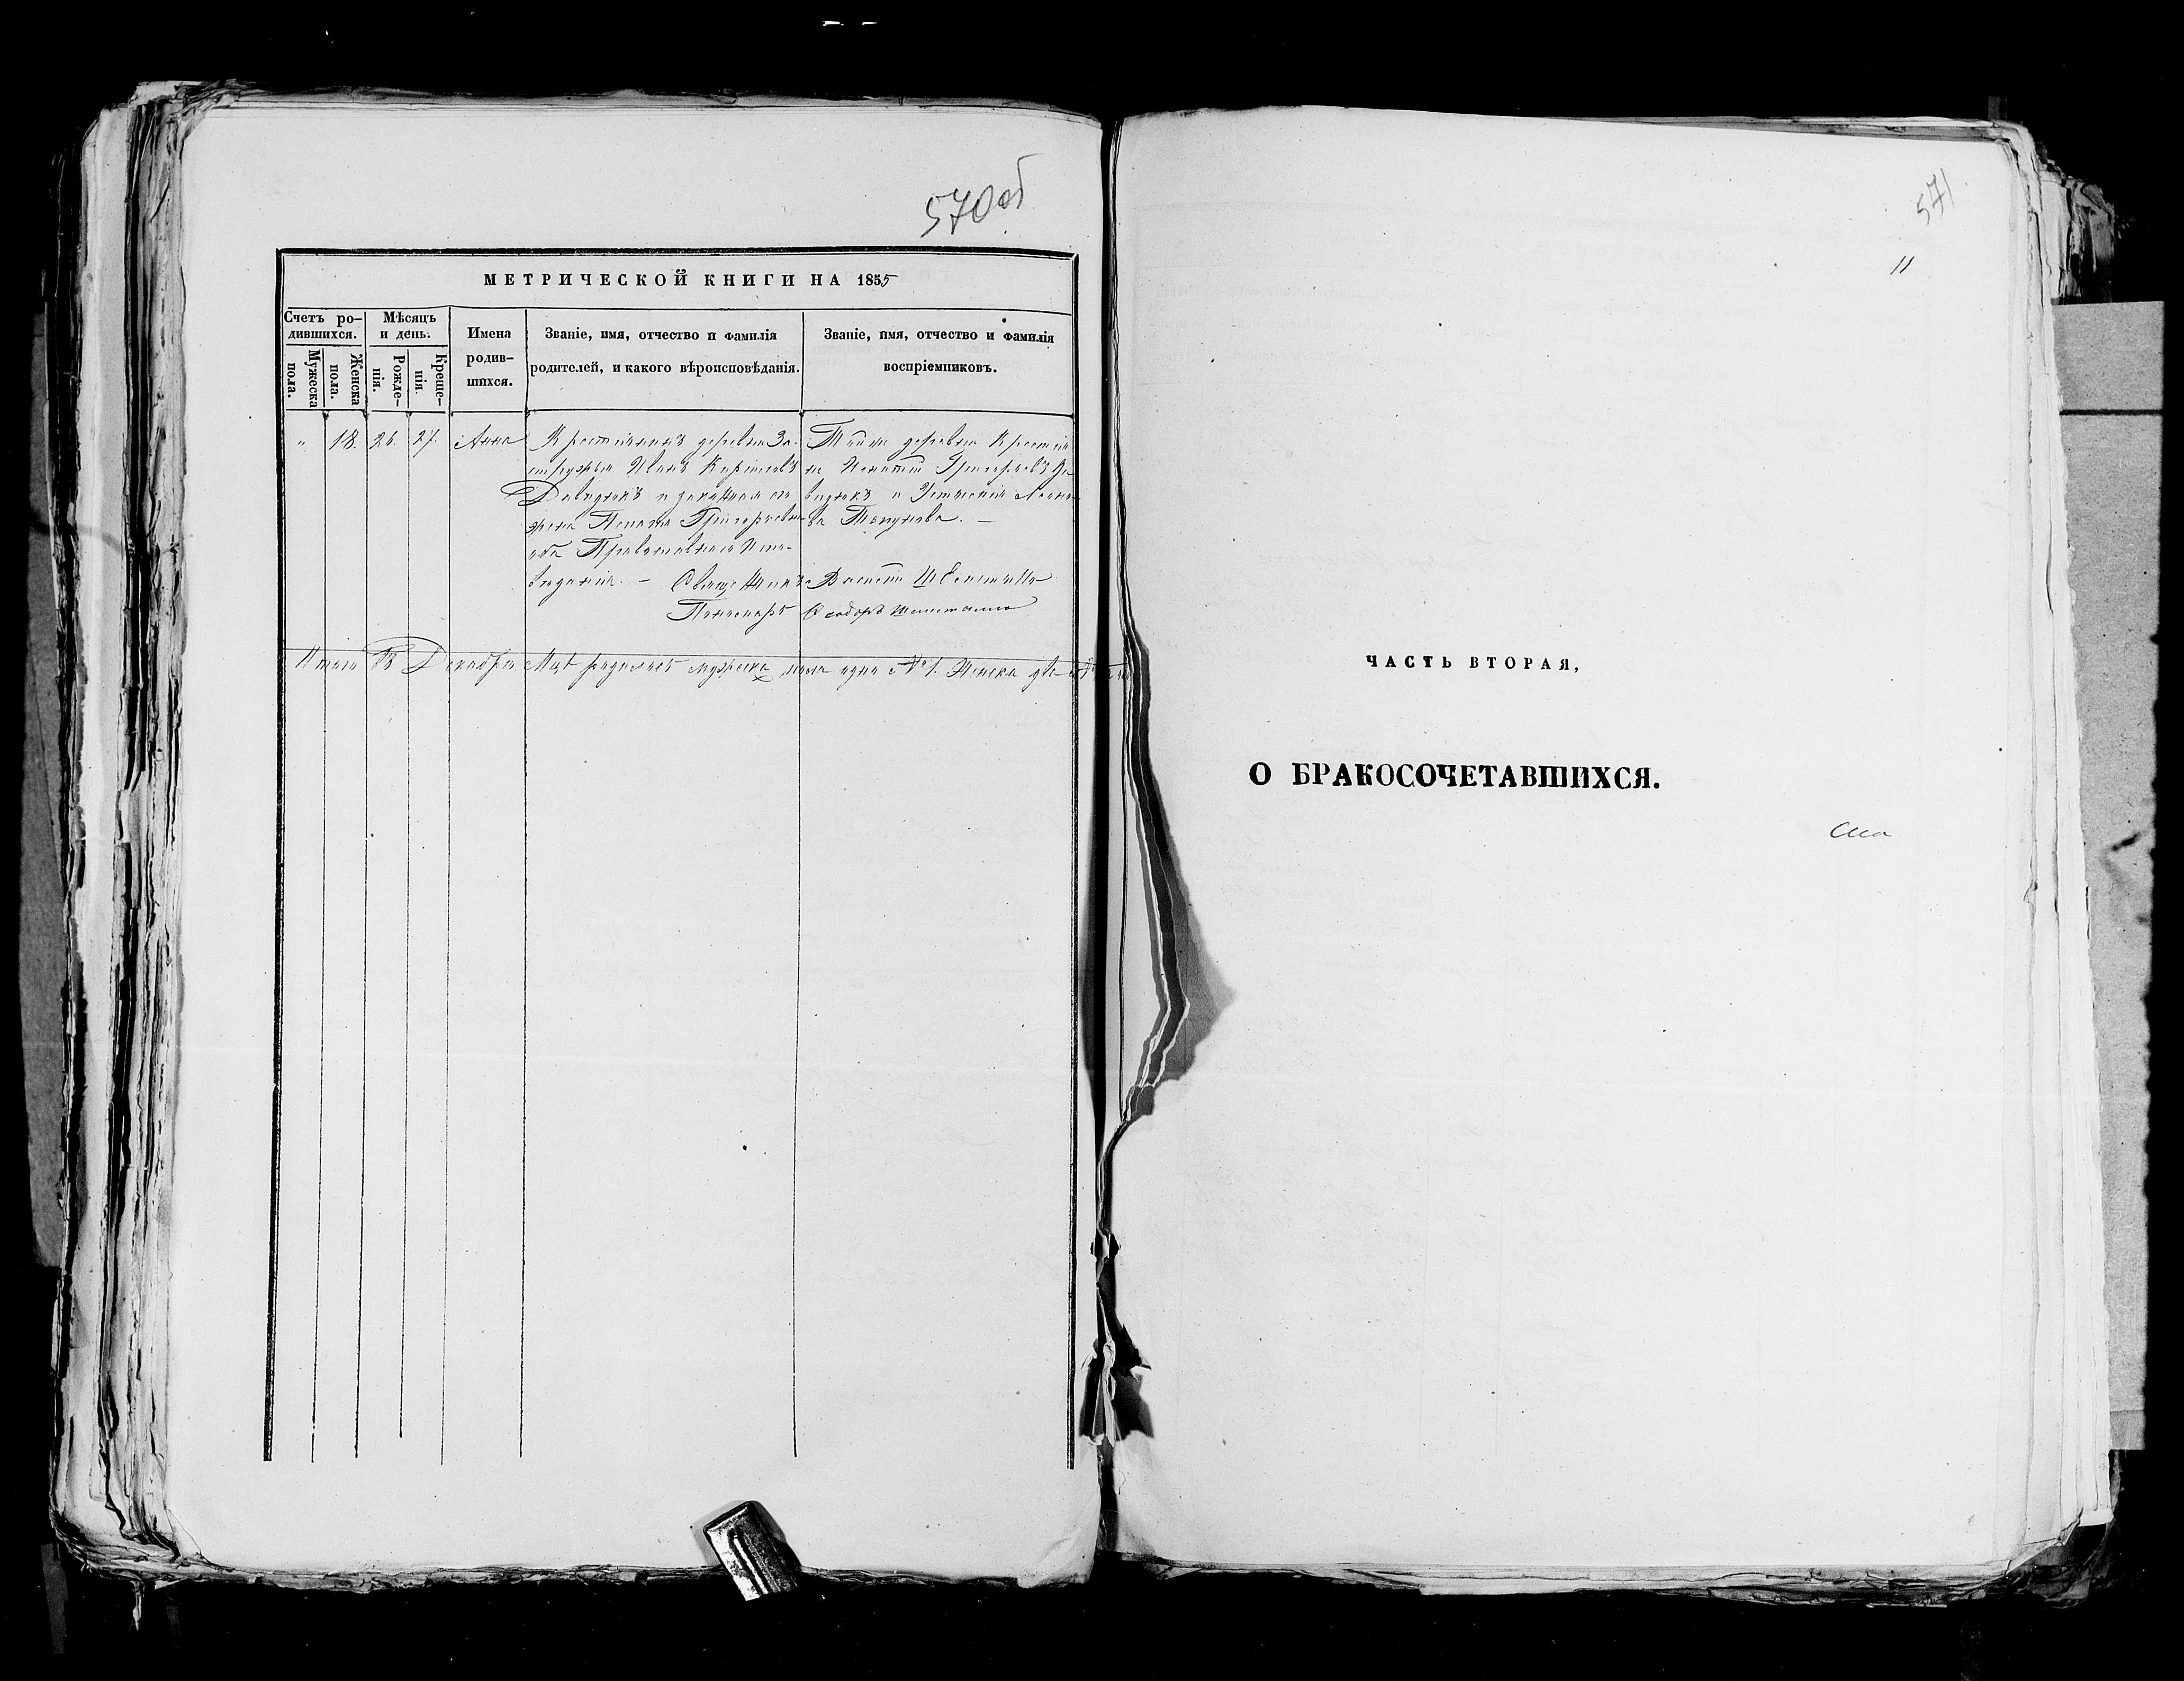 570 об
МЕТРИЧЕСКОЙ КНИГИ НА 1855
Счетъ ро-
дившихся.
Мужеска
пола.
Женска
пола.
Мѣсяцъ
и день.
Рожде-
нія.
Креще-
нія.
Имена
родив-
шихся.
Званіе, имя, отчество и фамилія
родителей, и какого вѣроисповѣданія.
Званіе, имя, отчество и фамилія
воспріемниковъ.
" 18. 26. 27. Анна
Крестьянинъ деревни За-
Иванъ
Давидюкъ и законная его
жена Григорьева
Православнаго Испо-
веданія. —
Тойже деревни Крестья
Григорьевъ Да
видюкъ и
ва —
Священникъ
Пономарь Феодоръ
Итого въ Декабрѣ Мцѣ родилось мужеска пола одна №1. Женска две
571
11
ЧАСТЬ ВТОРАЯ,
О БРАКОСОЧЕТАВШИХСЯ.